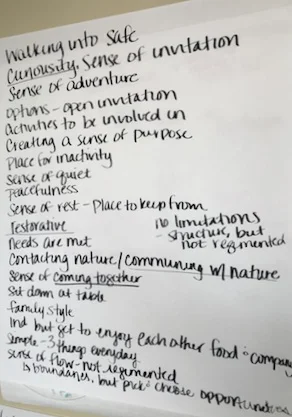 Walking into safe
Curiousity, Sense of invitation
Sense of adventure
options - open invitation
activities to be involved in
Creating a sense of purpose
Place for inactivity
sense of quiet
Peacefulness
Sense of rest - Place to keep from
Restorative
no limitations
- structure, but
not regimented
Needs are met
Contacting nature/communing w/ nature
Sense of coming together
Sit down at table
family style
Ind but get to enjoy each other food & company
Simple - 3 things everyday
sense of flow - not regimented
↳ boundaries, but pick & choose opportunities